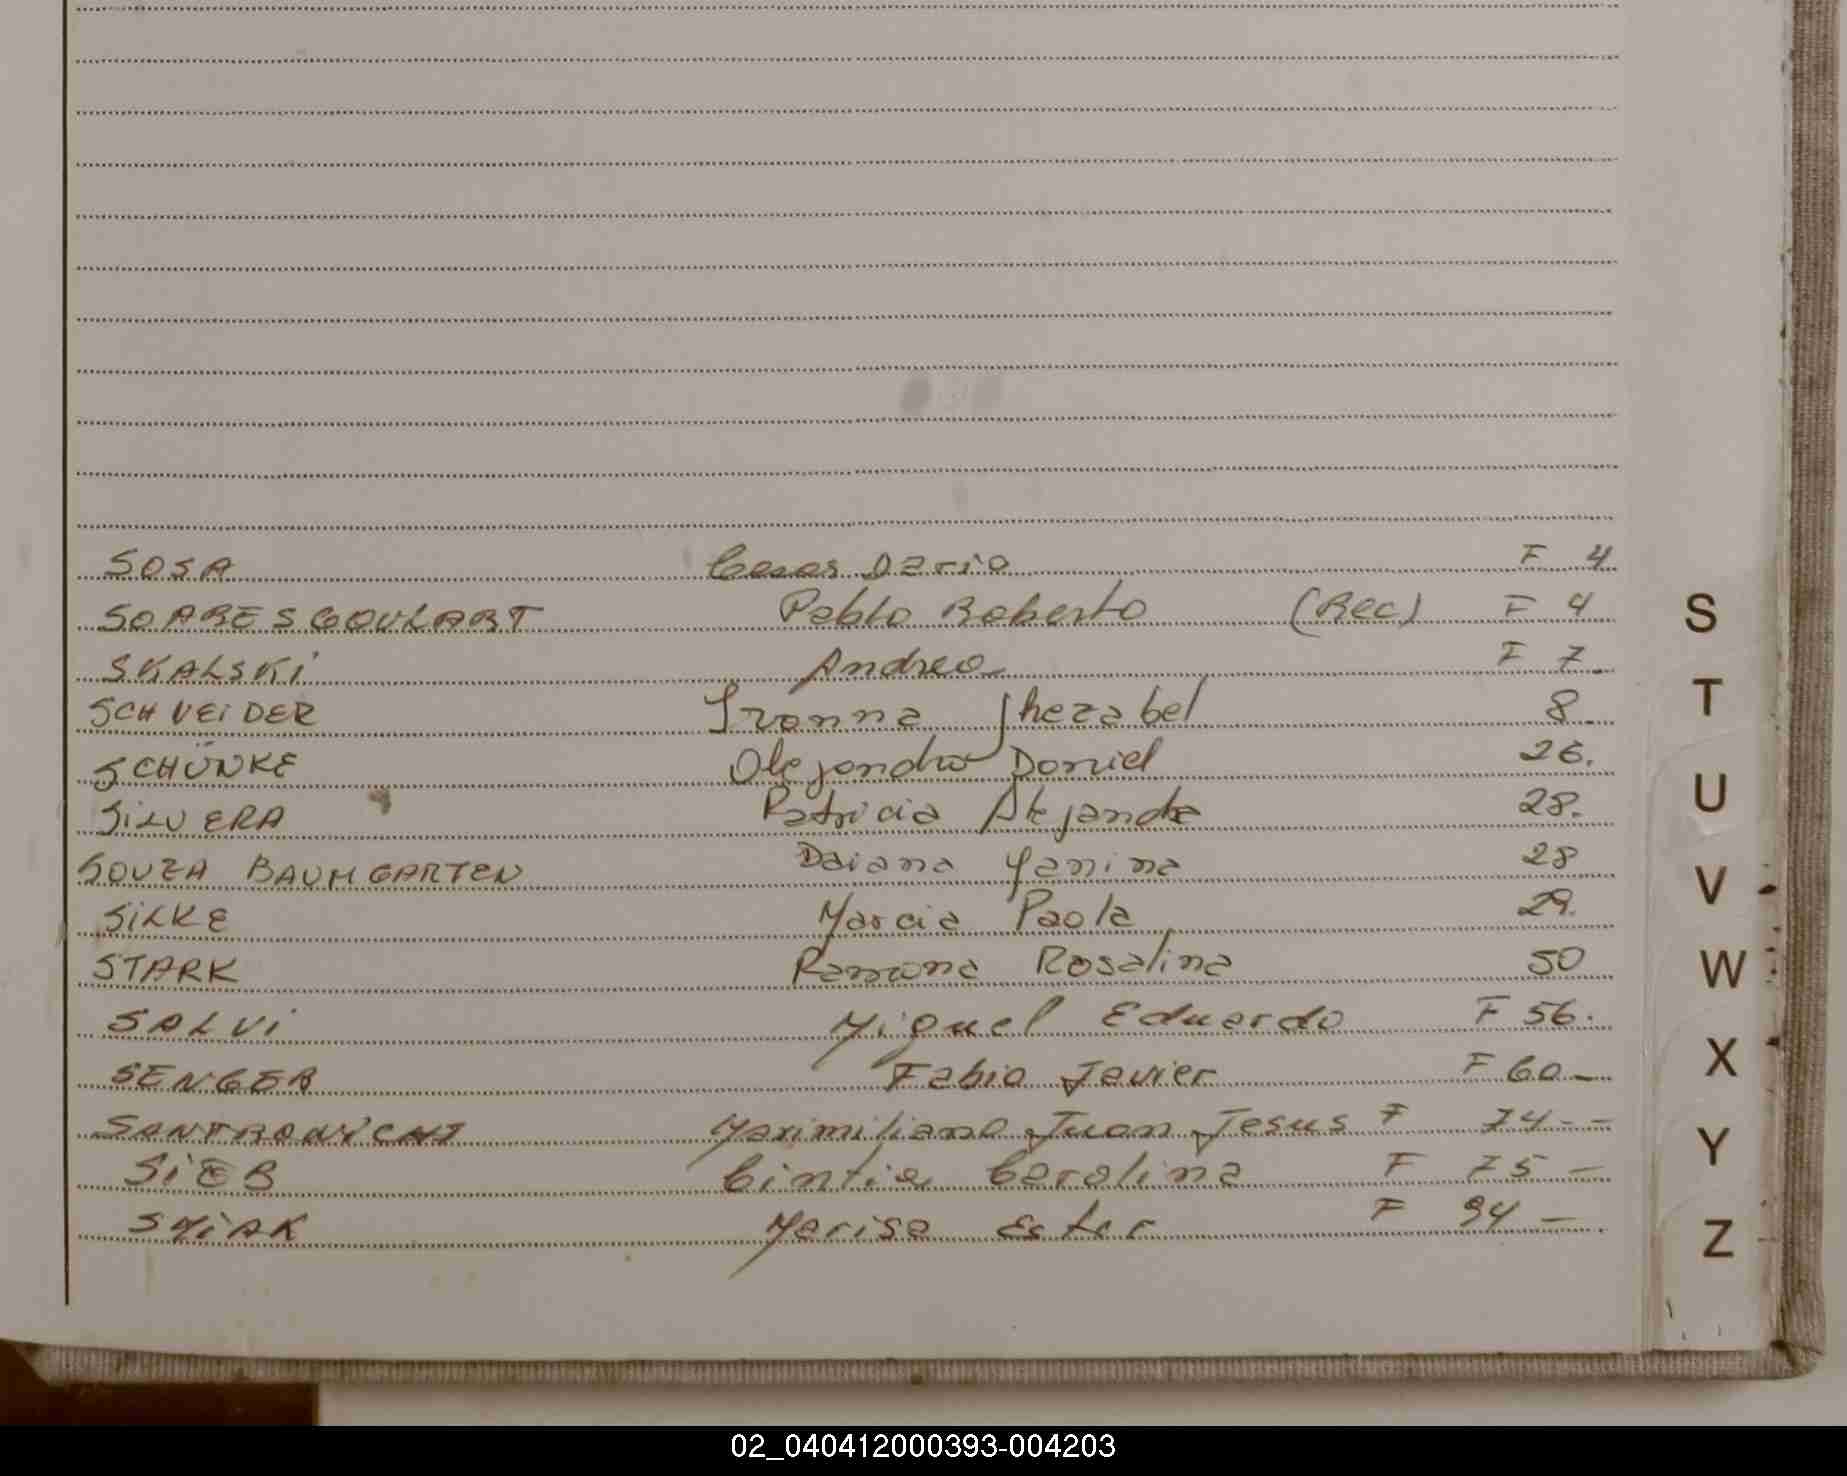 SOSA Cesar Dario F 4
SOARES GOULART Pablo Roberto (Rec) F 4
SKALSKI Andrea F 7
SCHVEIDER Ivonna Jhezabel 8
SCHÜNKE Alejandro Daniel 26.
SILVERA Patricia Alejandra 28.
SOUZA BAUMGARTEN Daiana Yanina 28
SILKE Marcia Paola 29.
STARK Ramona Rosalina 50
SALVI Miguel Eduardo F 56.
SENGER Fabio Javier F 60 -
Maximiliano Juan Jesus F 74 - -
SIEB Cintia Carolina F 75 -
SMIAK Marisa Ester F 94 -
S
T
U
V
W
X
Y
Z
02_040412000393-004203